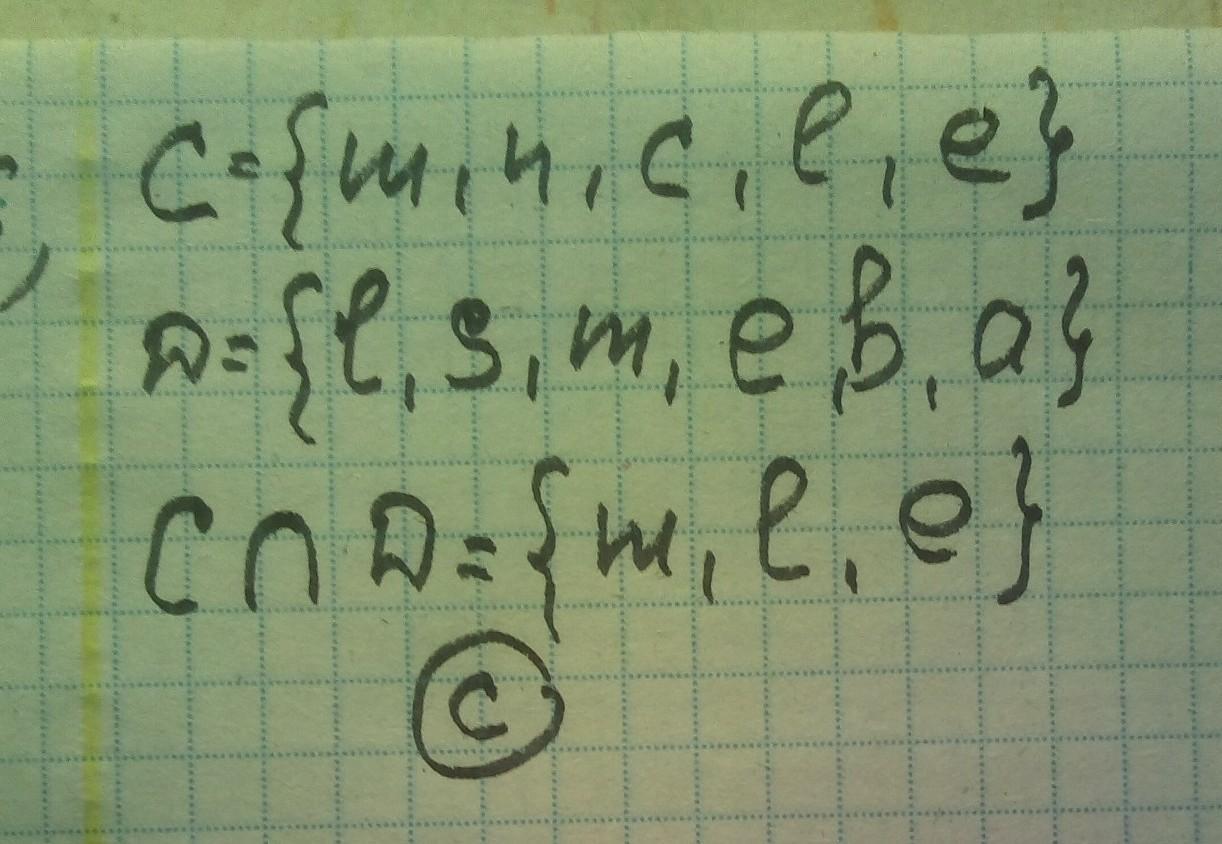 C={m, n, c, l, e}
D={l, s, m, e, b, a}
C∩D={m, l, e}
C